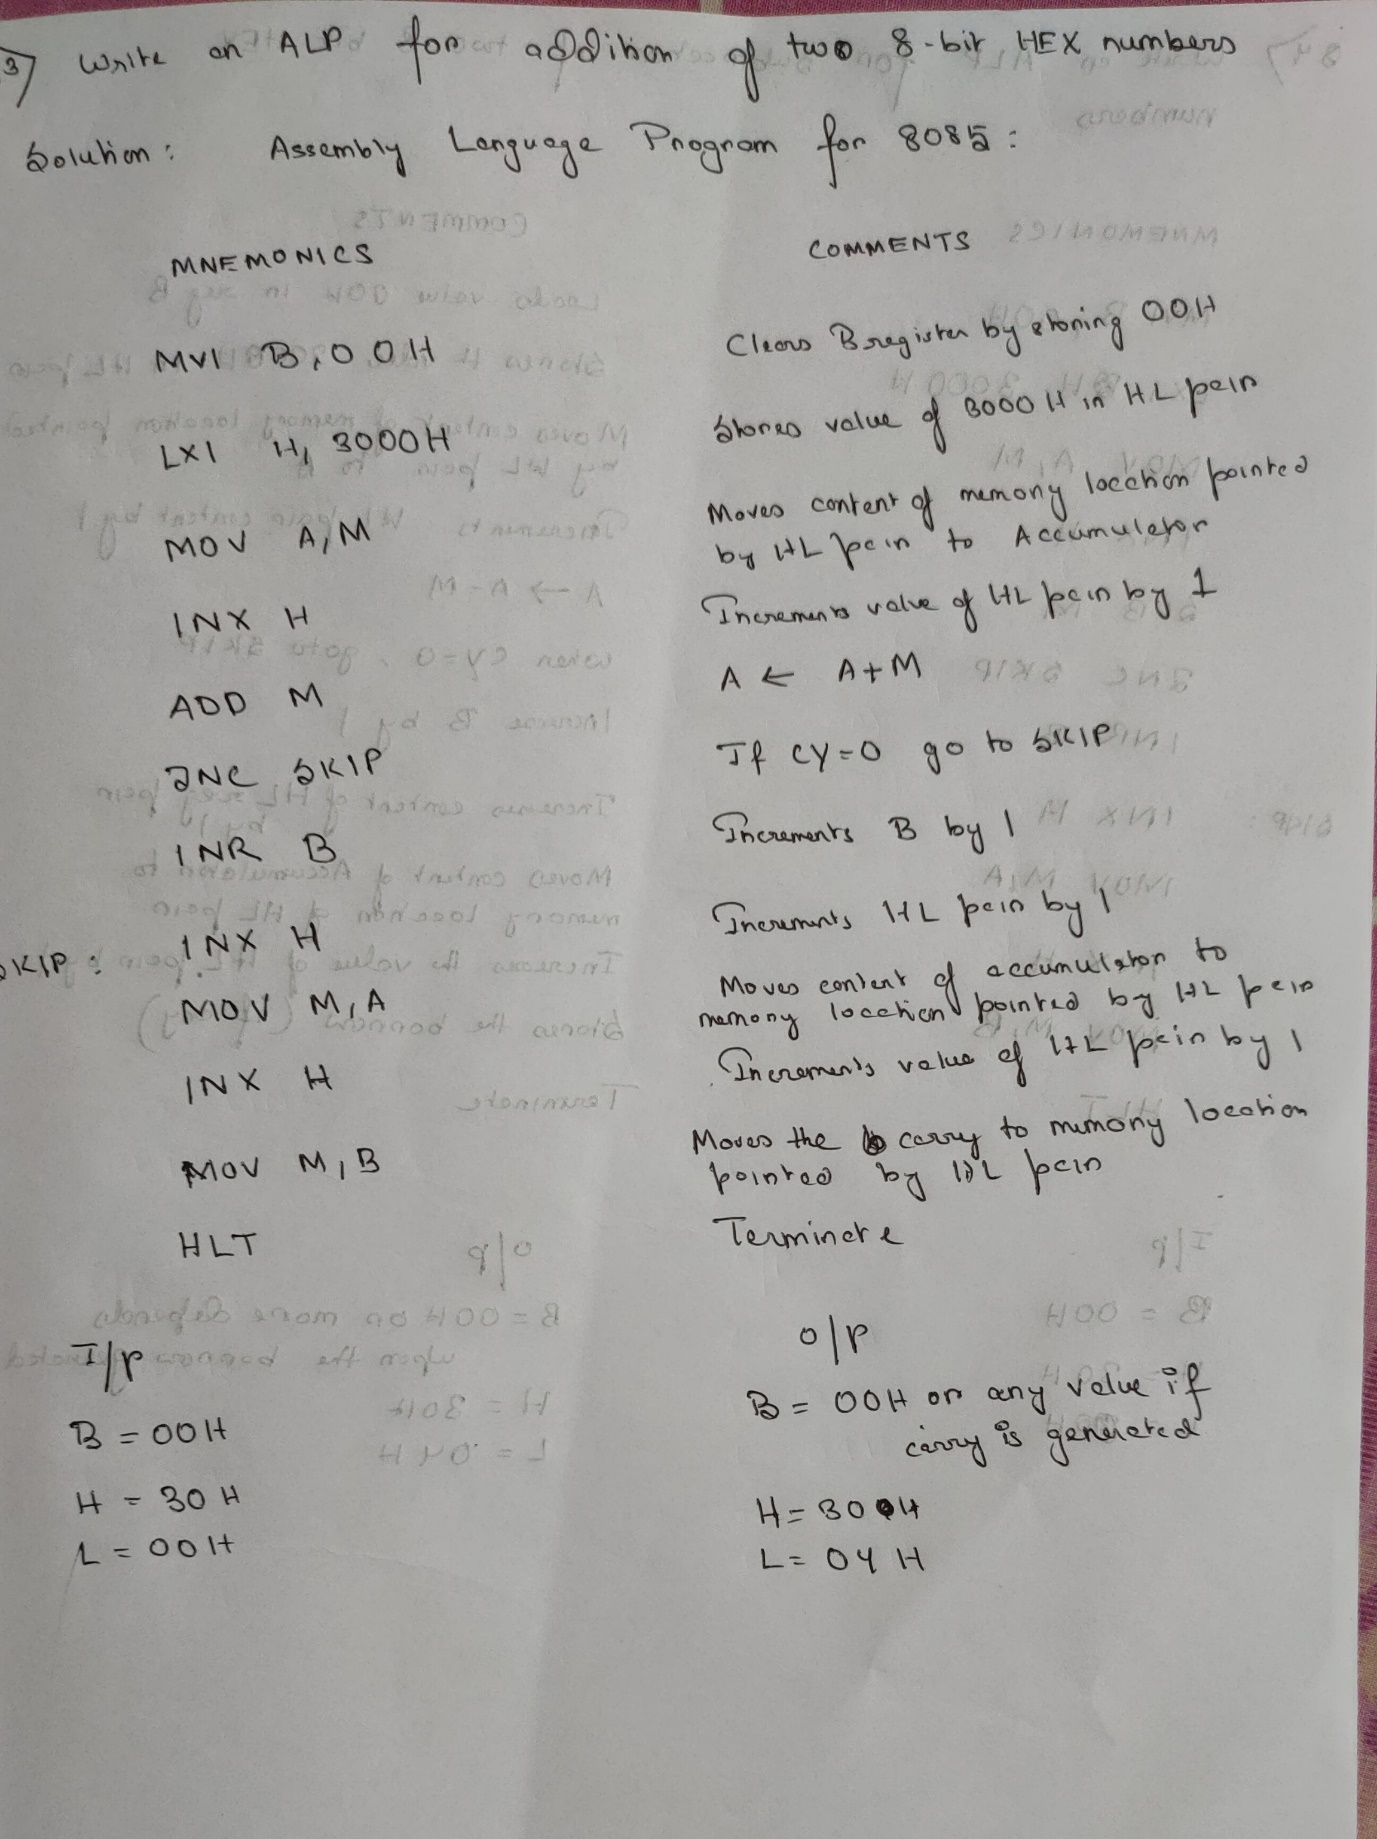 3) Write an ALP for addition of two 8-bit HEX numbers
Solution: Assembly Language Program for 8085:
MNEMONICS COMMENTS
MVI B,00H Clears B register by storing 00H
LXI H, 3000H Stores value of 3000H in HL pair
MOV A,M Moves content of memory location pointed
by HL pair to Accumulator
INX H Increments value of HL pair by 1
ADD M A ← A+M
JNC SKIP If CY=0 go to SKIP
INR B Increments B by 1
SKIP: INX H Increments HL pair by 1
MOV M,A Moves content of accumulator to
memory location pointed by HL pair
INX H Increments value of HL pair by 1
MOV M,B Moves the carry to memory location
pointed by HL pair
HLT Terminate
I/p O/P
B = 00H B = 00H or any value if
carry is generated
H = 30H H = 30H
L = 00H L = 04H